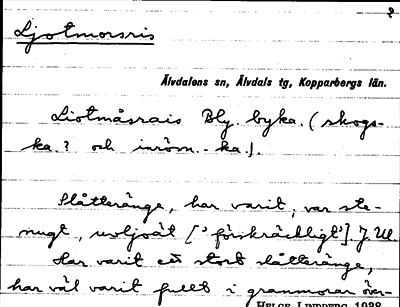 2
Ljotmorsris
Älvdalens sn, Älvdals tg, Kopparbergs län.
Liotmåsrais Bly. byka. (skogs-
ka.? och inrösn.-ka.).
Slåtteränge, har varit, var ste-
nugt, uvljoät [’förskräckligt’]. J. Ul.
Har varit ett stort slåtteränge,
har väl varit fullt i grannmorar över-
HELGE LINDBERG 1938